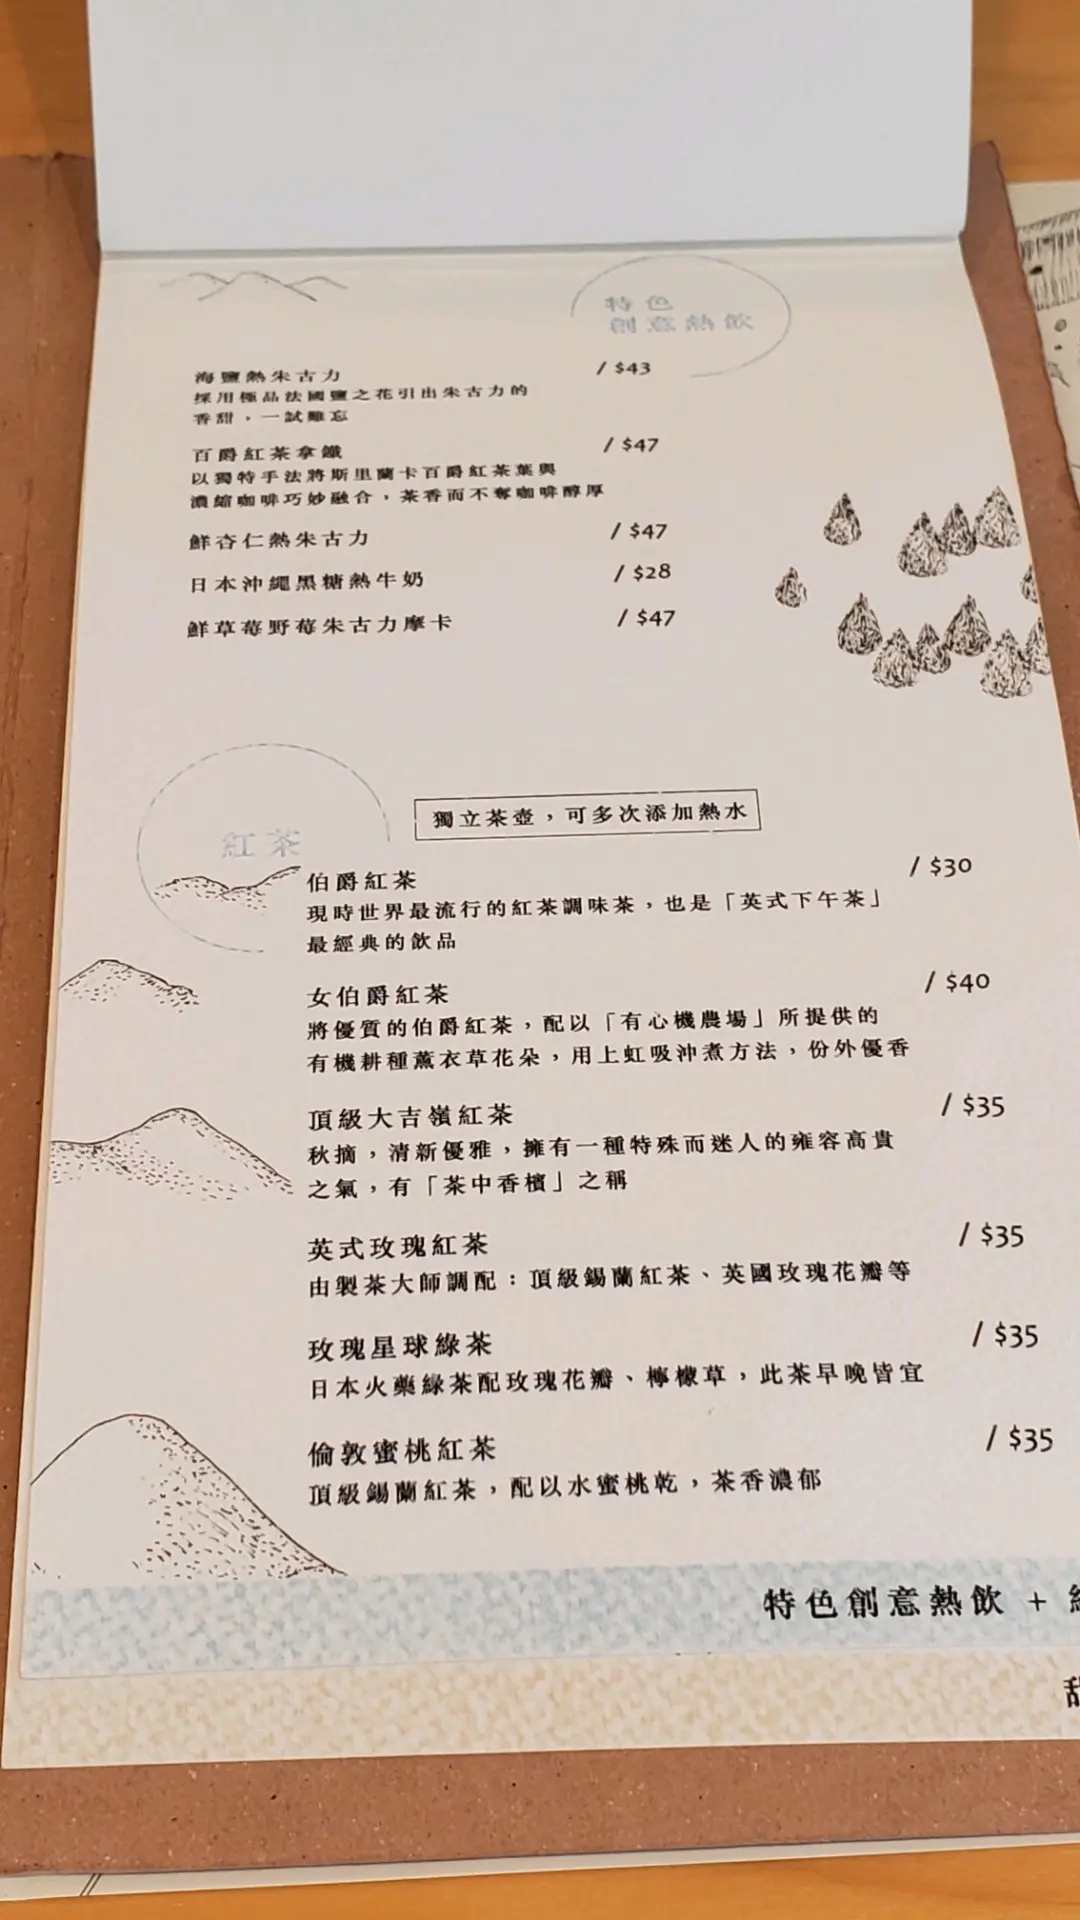 特色
創意熱飲
海鹽熱朱古力 / $43
採用極品法國鹽之花引出朱古力的
香甜，一試難忘
百爵紅茶拿鐵 / $47
以獨特手法將斯里蘭卡百爵紅茶葉與
濃縮咖啡巧妙融合，茶香而不奪咖啡醇厚
鮮杏仁熱朱古力 / $47
日本沖繩黑糖熱牛奶 / $28
鮮草莓野莓朱古力摩卡 / $47
紅茶
獨立茶壺，可多次添加熱水
伯爵紅茶 / $30
現時世界最流行的紅茶調味茶，也是「英式下午茶」
最經典的飲品
女伯爵紅茶 / $40
將優質的伯爵紅茶，配以「有心機農場」所提供的
有機耕種薰衣草花朵，用上虹吸沖煮方法，份外優香
頂級大吉嶺紅茶 / $35
秋摘，清新優雅，擁有一種特殊而迷人的雍容高貴
之氣，有「茶中香檳」之稱
英式玫瑰紅茶 / $35
由製茶大師調配：頂級錫蘭紅茶、英國玫瑰花瓣等
玫瑰星球綠茶 / $35
日本火藥綠茶配玫瑰花瓣、檸檬草，此茶早晚皆宜
倫敦蜜桃紅茶 / $35
頂級錫蘭紅茶，配以水蜜桃乾，茶香濃郁
特色創意熱飲 +